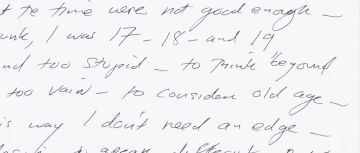 t te time were not good enough –
unk, I was 17 – 18 – and 19
nd too stupid – to think "beyond
too vain – to consider old age –
is way I don't need an edge –